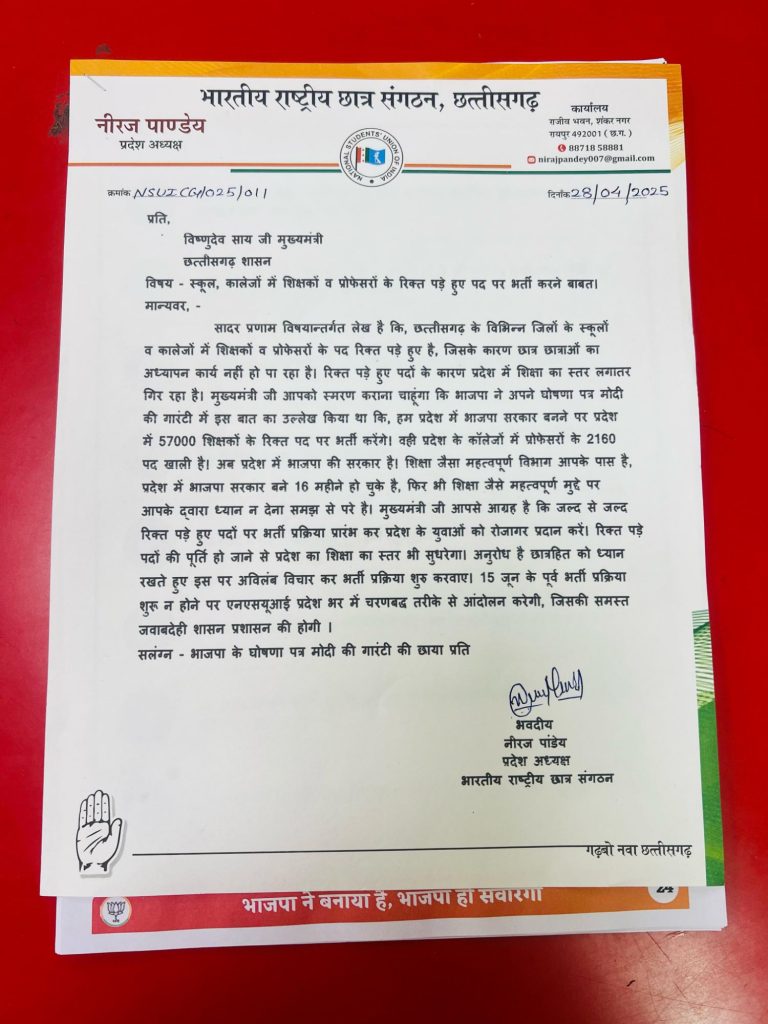 भारतीय राष्ट्रीय छात्र संगठन, छत्तीसगढ़
नीरज पाण्डेय
प्रदेश अध्यक्ष
कार्यालय
राजीव भवन, शंकर नगर
रायपुर 492001 ( छ.ग. )
88718 58881
nirajpandey007@gmail.com
NATIONAL STUDENTS' UNION OF INDIA
क्रमांक NSUICG/025/011
दिनाँक 28/04/2025
प्रति,
विष्णुदेव साय जी मुख्यमंत्री
छत्तीसगढ़ शासन
विषय - स्कूल, कालेजों में शिक्षकों व प्रोफेसरों के रिक्त पड़े हुए पद पर भर्ती करने बाबत।
मान्यवर, -
सादर प्रणाम विषयान्तर्गत लेख है कि, छत्तीसगढ़ के विभिन्न जिलों के स्कूलों
व कालेजों में शिक्षकों व प्रोफेसरों के पद रिक्त पड़े हुए है, जिसके कारण छात्र छात्राओं का
अध्यापन कार्य नहीं हो पा रहा है। रिक्त पड़े हुए पदों के कारण प्रदेश में शिक्षा का स्तर लगातर
गिर रहा है। मुख्यमंत्री जी आपको स्मरण कराना चाहूंगा कि भाजपा ने अपने घोषणा पत्र मोदी
की गारंटी में इस बात का उल्लेख किया था कि, हम प्रदेश में भाजपा सरकार बनने पर प्रदेश
में 57000 शिक्षकों के रिक्त पद पर भर्ती करेंगे। वही प्रदेश के कॉलेजों में प्रोफेसरों के 2160
पद खाली है। अब प्रदेश में भाजपा की सरकार है। शिक्षा जैसा महत्वपूर्ण विभाग आपके पास है,
प्रदेश में भाजपा सरकार बने 16 महीने हो चुके है, फिर भी शिक्षा जैसे महत्वपूर्ण मुद्दे पर
आपके द्वारा ध्यान न देना समझ से परे है। मुख्यमंत्री जी आपसे आग्रह है कि जल्द से जल्द
रिक्त पड़े हुए पदों पर भर्ती प्रक्रिया प्रारंभ कर प्रदेश के युवाओं को रोजागर प्रदान करें। रिक्त पड़े
पदों की पूर्ति हो जाने से प्रदेश का शिक्षा का स्तर भी सुधरेगा। अनुरोध है छात्रहित को ध्यान
रखते हुए इस पर अविलंब विचार कर भर्ती प्रक्रिया शुरु करवाए। 15 जून के पूर्व भर्ती प्रक्रिया
शुरू न होने पर एनएसयूआई प्रदेश भर में चरणबद्ध तरीके से आंदोलन करेगी, जिसकी समस्त
जवाबदेही शासन प्रशासन की होगी ।
सलंग्न - भाजपा के घोषणा पत्र मोदी की गारंटी की छाया प्रति
भवदीय
नीरज पांडेय
प्रदेश अध्यक्ष
भारतीय राष्ट्रीय छात्र संगठन
गढ़बो नवा छत्तीसगढ़
भाजपा ने बनाया है, भाजपा ही सँवारेगी
24